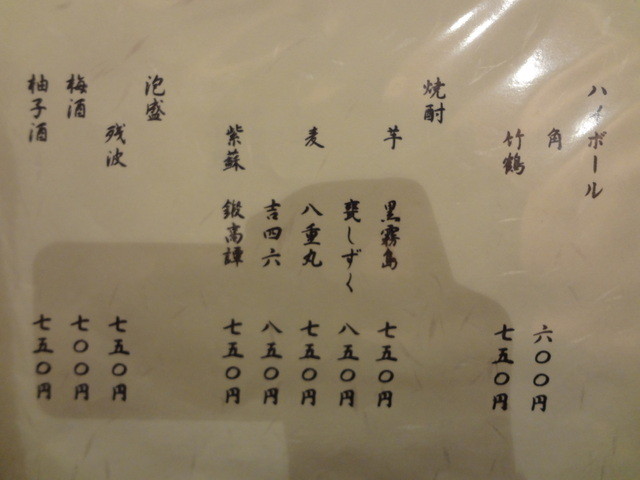 ハイボール
角 六〇〇円
竹鶴 七五〇円
焼酎
芋 黒霧島 七五〇円
甕しずく 八五〇円
麦 八重丸 七五〇円
吉四六 八五〇円
紫蘇 鍛高譚 七五〇円
泡盛
残波 七五〇円
梅酒 七〇〇円
柚子酒 七五〇円